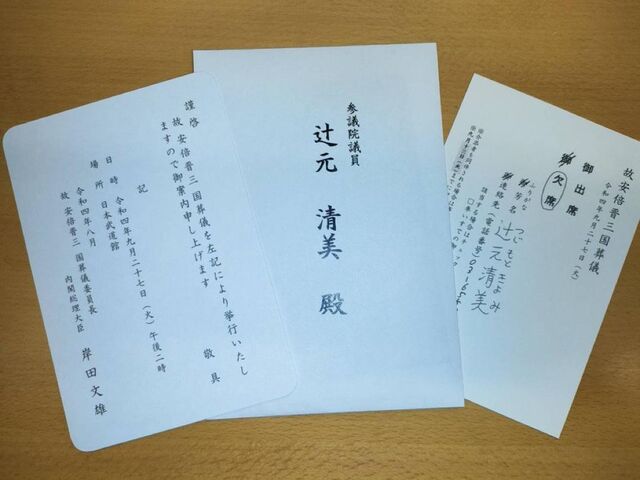 謹啓
故 安倍晋三 国葬儀を左記により挙行いたし
ますので御案内申し上げます
敬具
記
日時 令和四年九月二十七日(火)午後二時
場所 日本武道館
令和四年八月
故 安倍晋三 国葬儀委員長
内閣総理大臣 岸田文雄
参議院議員
辻元 清美 殿
故 安倍晋三 国葬儀
令和四年九月二十七日(火)
御出席
欠席
ふりがな つじもときよみ
芳名 辻元清美
連絡先(電話番号)